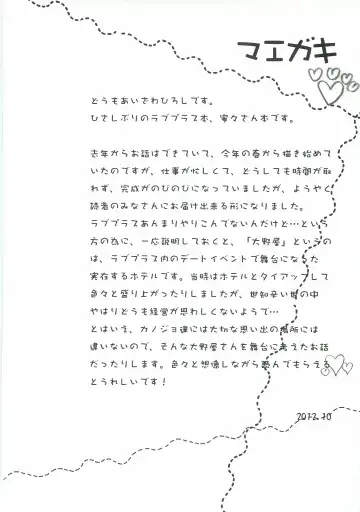 マエガキ
どうもあいざわひろしです。
ひさしぶりのラブプラス本、寧々さん本です。
去年からお話はできていて、今年の春から描き始めて
いたのですが、仕事が忙しくて、どうしても時間が取
れず、完成がのびのびになっていましたが、ようやく
読者のみなさんにお届け出来る形になりました。
ラブプラスあんまりやりこんでないんだけど…という
方の為に、一応説明しておくと、「大野屋」というの
は、ラブプラス内のデートイベントで舞台になった
実在するホテルです。当時はホテルとタイアップして
色々と盛り上がったりしましたが、世知辛い世の中
やはりどうも経営が思わしくないようで…
とはいえ、カノジョ達には大切な思い出の場所には
違いないので、そんな大野屋さんを舞台に考えたお話
だったりします。色々と想像しながら読んでもらえる
とうれしいです！
2012.10